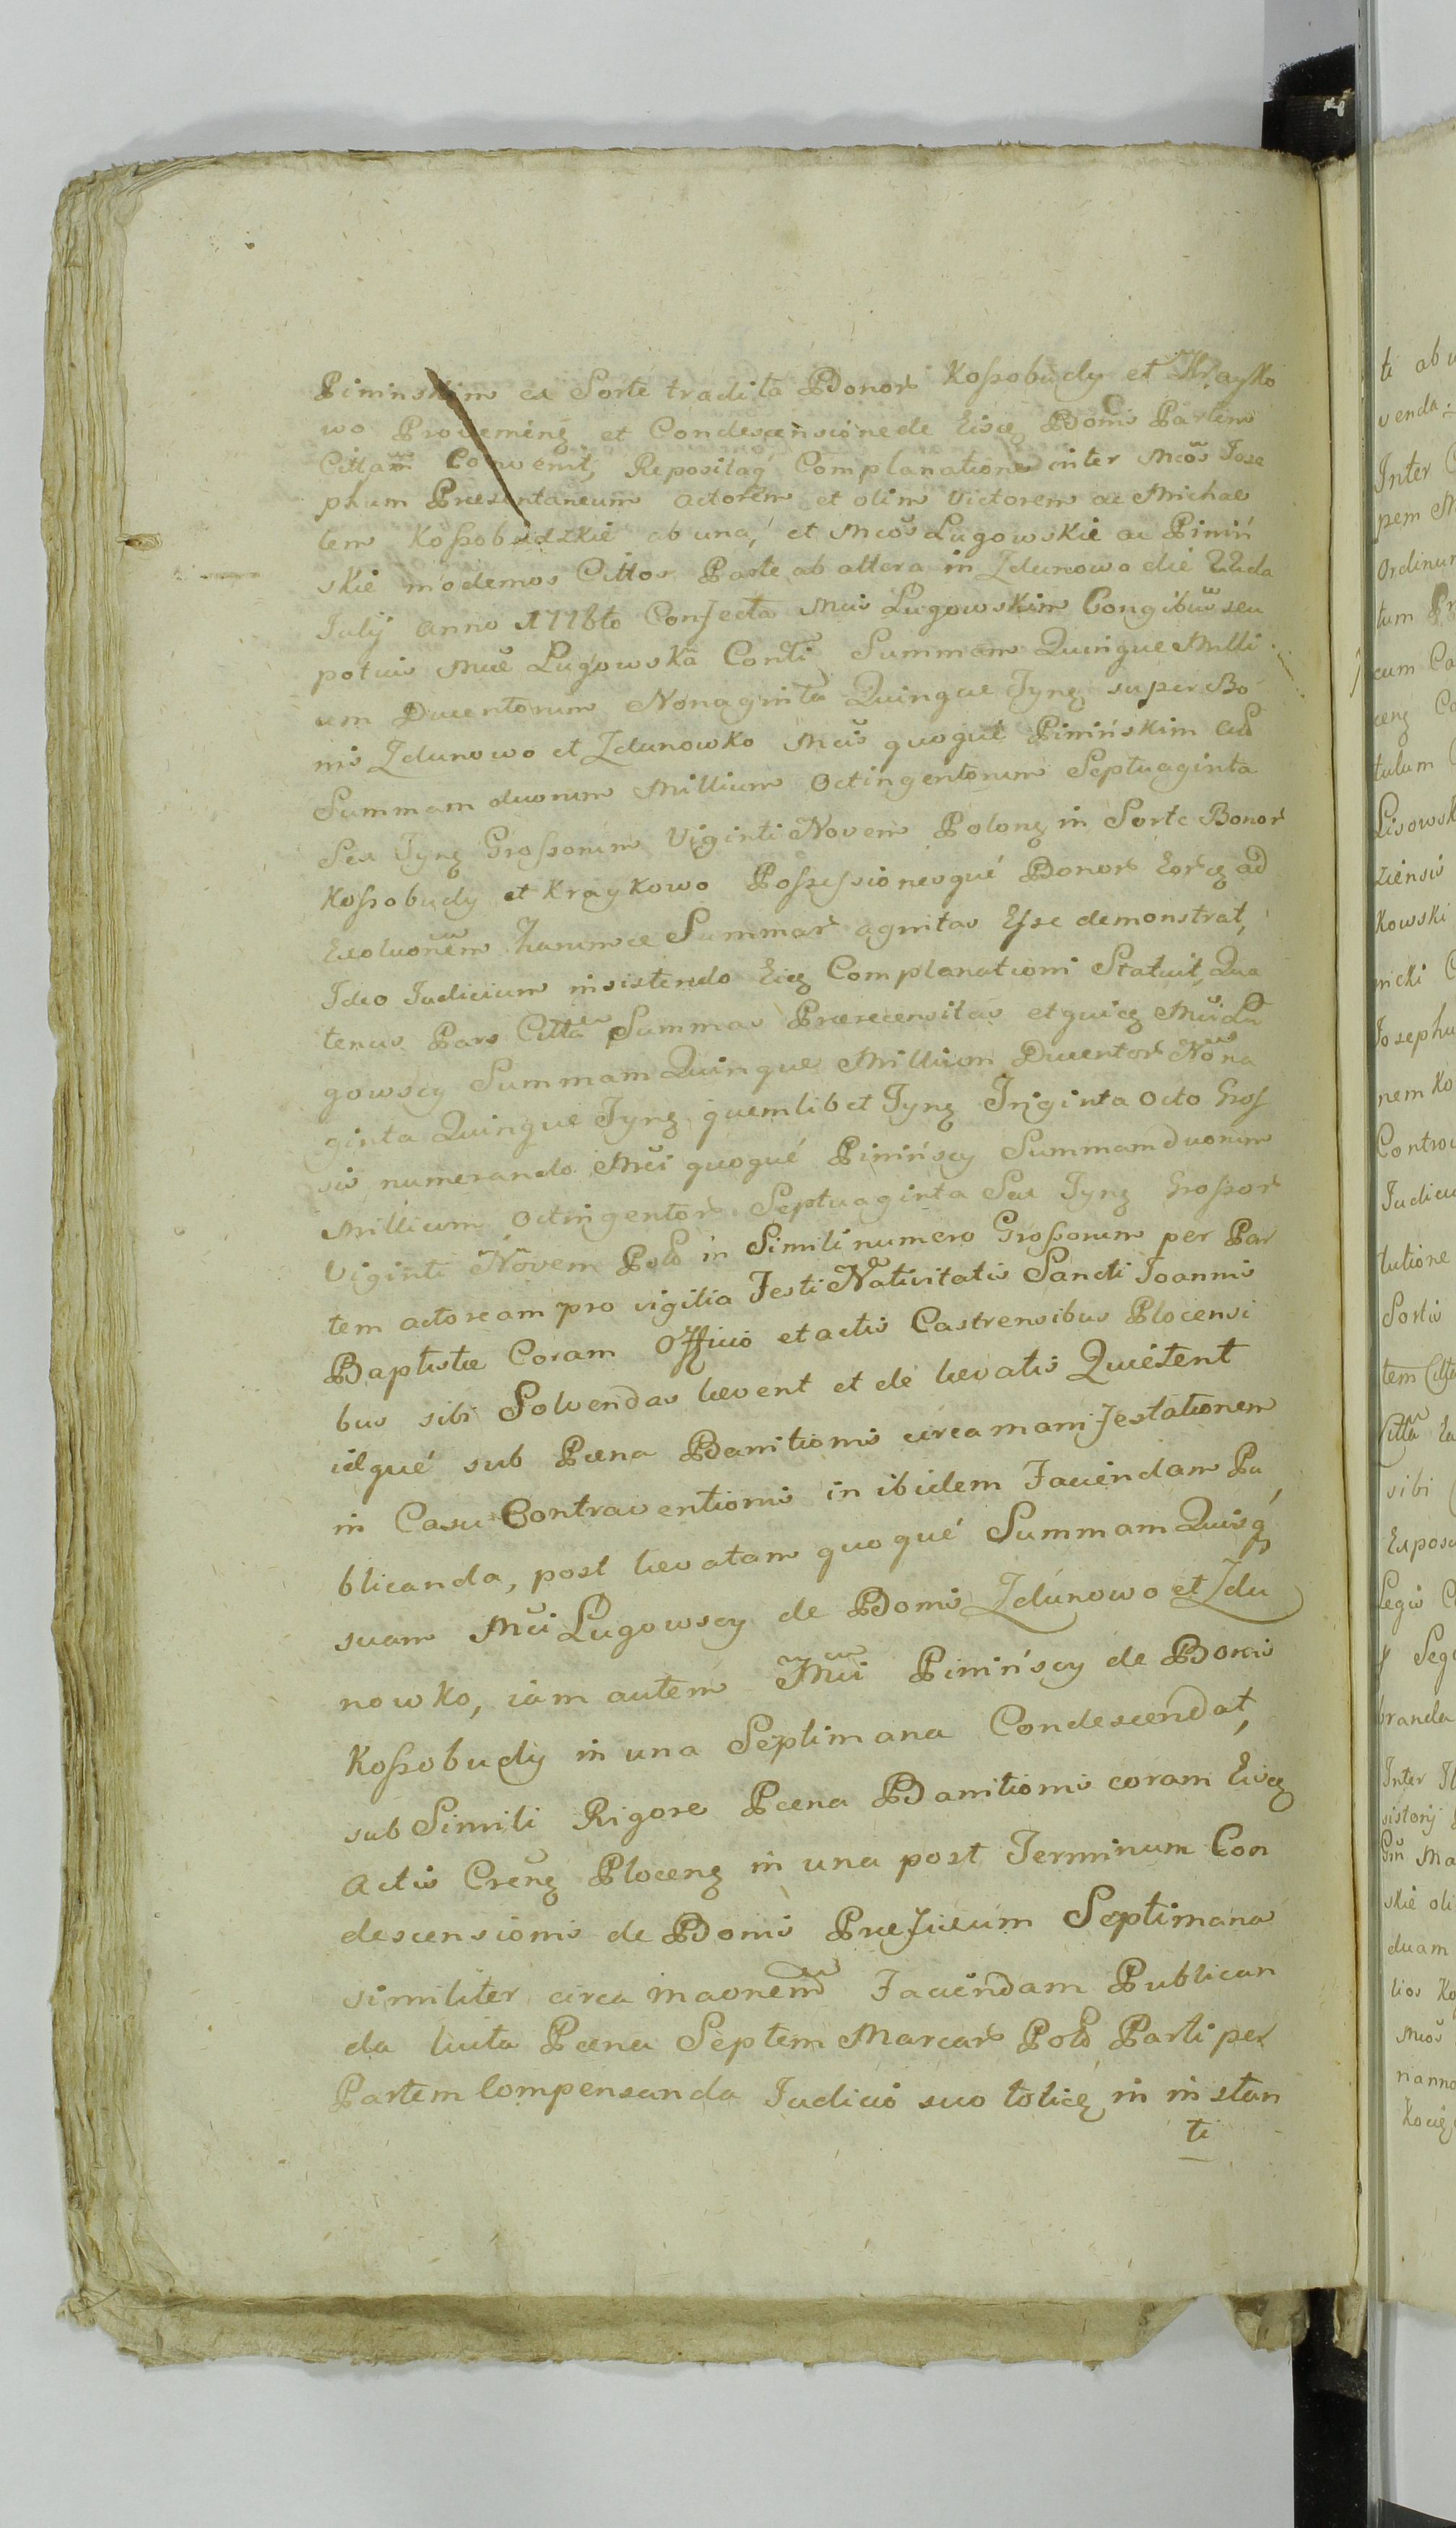 Pininskim ex Sorte tradita Bonor Kossobudy et Krayko
wo Proveming et Condescensionede Eisce Bonis Partem
Cittam Convenit, Repositaq Complanatione inter Mcos Jose
phum Praesentaneum actorem et olim Victorem ac Michae
lem Kossobudzkie ab una, et Mcos Lugowskie ac Piniń
skie modernos Cittos Parte ab altera in Zdunowo die 22da
July Anno 1778to Confecta Mcis Lugowskim Congibus seu
potius Mcae Lugowska Conti Summam Quinque Milli
um Ducentorum Nonaginta Quinque Tynf super Bo
nis Zdunowo et Zdunowko Mcis quoque Pinińskim ad
Summam duorum Millium Octingentorum Septuaginta
Sex Tynf Grossorum Viginti Novem Polong in Sorte Bonor
Kossobudy et Kraykowo Possessionesque Bonor Eorce ad
Exoluonem harumce Summar agnitas Esse demonstrat,
Ideo Iudicium insistendo Eice Complanationi Statuit, Qua
tenus Pars Citta Summas Praerecensitas et quice Mci Lu
gowscy Summam Quinque Millium Ducentor Nona
ginta Quinque Tynf quemlibet Tynf Triginta Octo Gros
sis numerando Mci quoque Pinińscy Summam duorum
Millium Octingentor Septuaginta Sex Tynf Grossor
Viginti Novem Pold in Simili numero Grossorum per Par
tem actoream pro vigilia Festi Nativitatis Sancti Joannis
Baptistae Coram Officio et actis Castrensibus Plocensi
bus sibi Solvendas levent et de levatis Quietent
idque sub Paena Banitionis circa manifestationem
in Casu Contraventionis in ibidem Faciendam Pu
blicanda, post levatam quoque Summam Quisq
suam Mci Lugowscy de Bonis Zdunowo et Zdu
nowko, iam autem Mci Pinińscy de Bonis
Kossobudy in una Septimana Condescendat,
sub Simili Rigore Paena Banitionis coram Eisce
Actis Creng Ploceng in una post Terminum Con
descensionis de Bonis Praeficum Septimana
similiter circa maonem Faciendam Publican
da luita Paena Septem Marcar Pold Parti per
Partem compensanda Iudicio suo toties in instan
ti